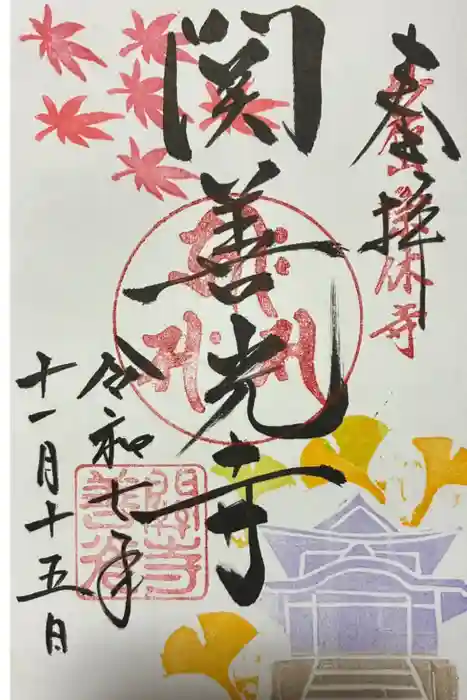 奉拝
関善光寺
令和七年
十一月十五日